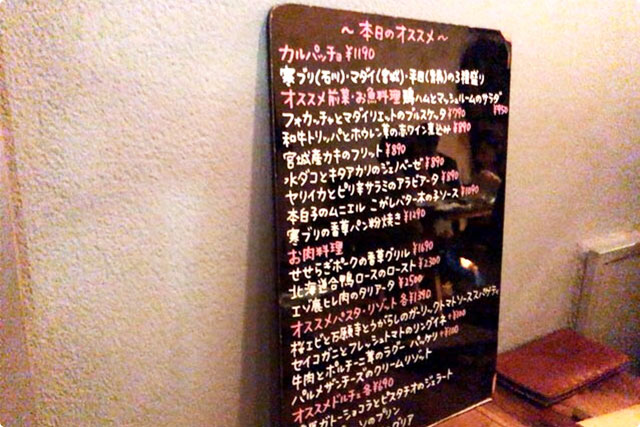 ～本日のオススメ～
カルパッチョ ¥1190
寒ブリ(石川)・マダイ(宮城)・平目(青森)の3種盛り
オススメ前菜・お魚料理 鴨ハムとマッシュルームのサラダ ¥950
フォカッチャとマダイリエットのブルスケッタ ¥790
和牛トリッパとホウレン草の赤ワイン煮込み ¥890
宮城産カキのフリット ¥890
水ダコとキタアカリのジェノベーゼ ¥890
ヤリイカとピリ辛サラミのアラビアータ ¥890
本白子のムニエル こがしバター木の子ソース ¥1090
寒ブリの香草パン粉焼き ¥1290
お肉料理
せせらぎポークの香草グリル ¥1690
北海道合鴨ロースのロースト ¥2300
エゾ鹿ヒレ肉のタリアータ ¥2500
オススメパスタ・リゾット 各¥1390
桜エビと石願寺とうがらしのガーリックトマトソーススパゲティ
セイコガニとフレッシュトマトのリングイネ +¥100
牛肉とポルチーニ茸のラグー パッケリ +¥100
パルメザンチーズのクリームリゾット
オススメドルチェ 各¥690
ガトーショコラとピスタチオのジェラート
のプリン